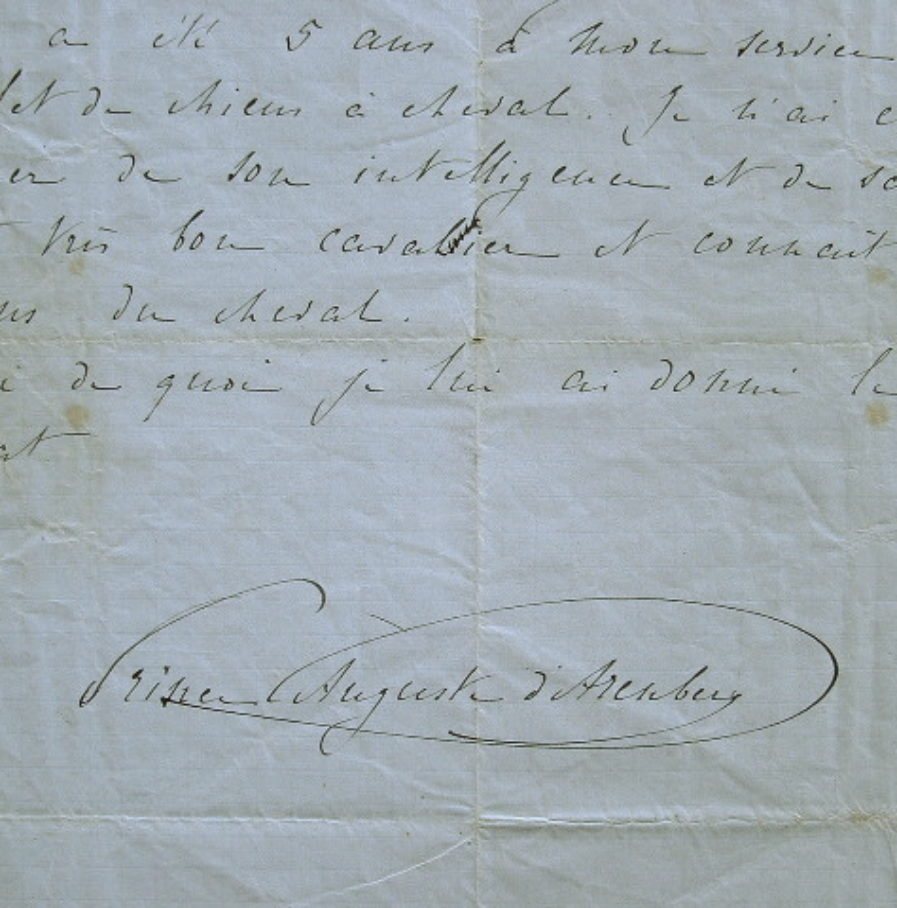 a été 5 ans à mon service
let de chiens à cheval. Je n'ai
er de son intelligence et de
très bon cavalier et connait
ns du cheval.
i de quoi je lui ai donné le
at
Prince Auguste d'Arenberg